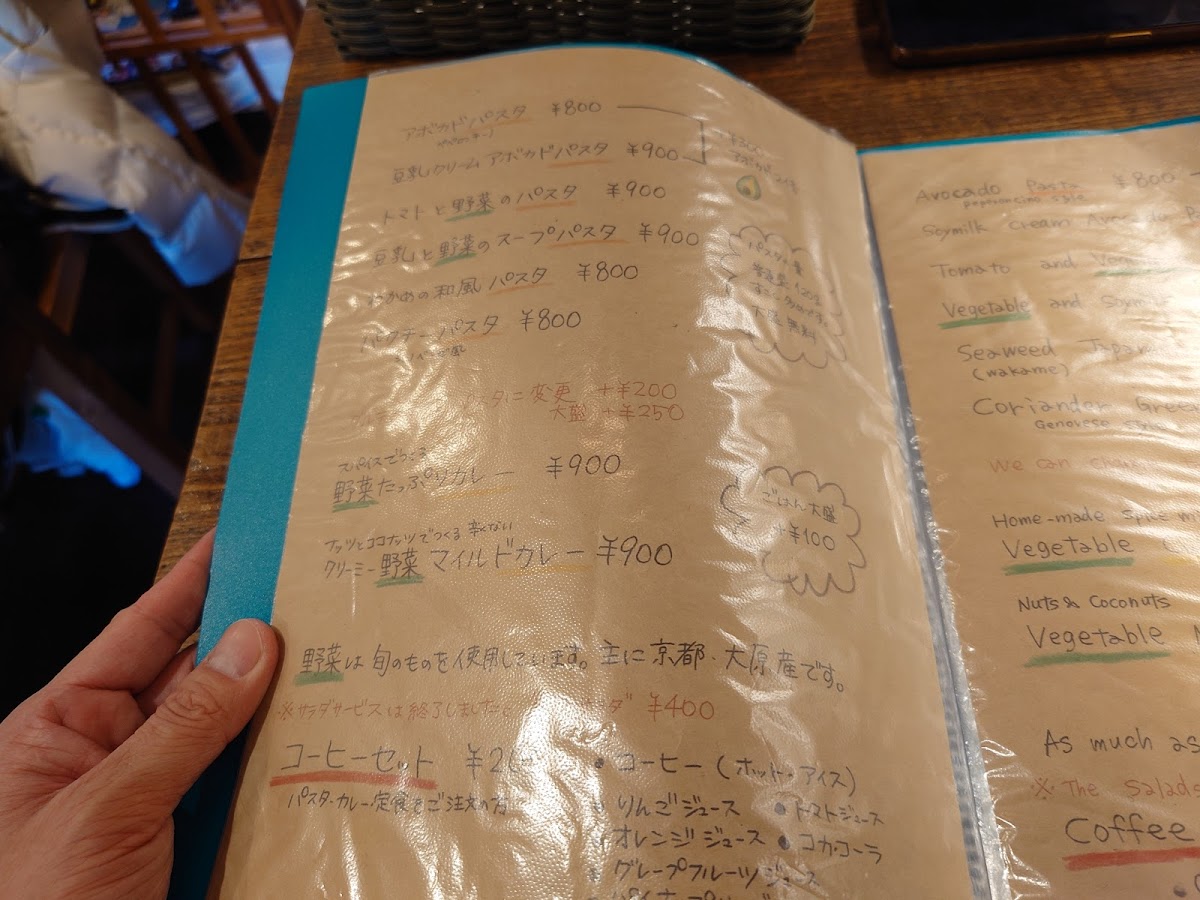 アボカドパスタ ¥800
豆乳クリーム アボカドパスタ ¥900
トマトと野菜のパスタ ¥900
豆乳と野菜のスープパスタ ¥900
わかめの和風パスタ ¥800
パクチーパスタ ¥800
パスタ量
大盛無料
に変更 +¥200
大盛 +¥250
スパイスでつくる
野菜たっぷりカレー ¥900
ナッツとココナッツでつくる 辛くない
クリーミー野菜マイルドカレー ¥900
ごはん大盛
+¥100
野菜は旬のものを使用しています。主に京都・大原産です。
※サラダサービスは終了しました。 ¥400
コーヒーセット
パスタ・カレー・定食をご注文の方
• コーヒー(ホット・アイス)
• りんごジュース • トマトジュース
• オレンジジュース • コカ・コーラ
• グレープフルーツジュース
Avocado Pasta ¥800
peperoncino style
Soymilk cream Avocado
Tomato and
Vegetable and Soymilk
Seaweed
(wakame)
Coriander
Genovese style
We can
Home-made
Vegetable
Nuts & Coconuts
Vegetable
As much as
※ The Salads
Coffee